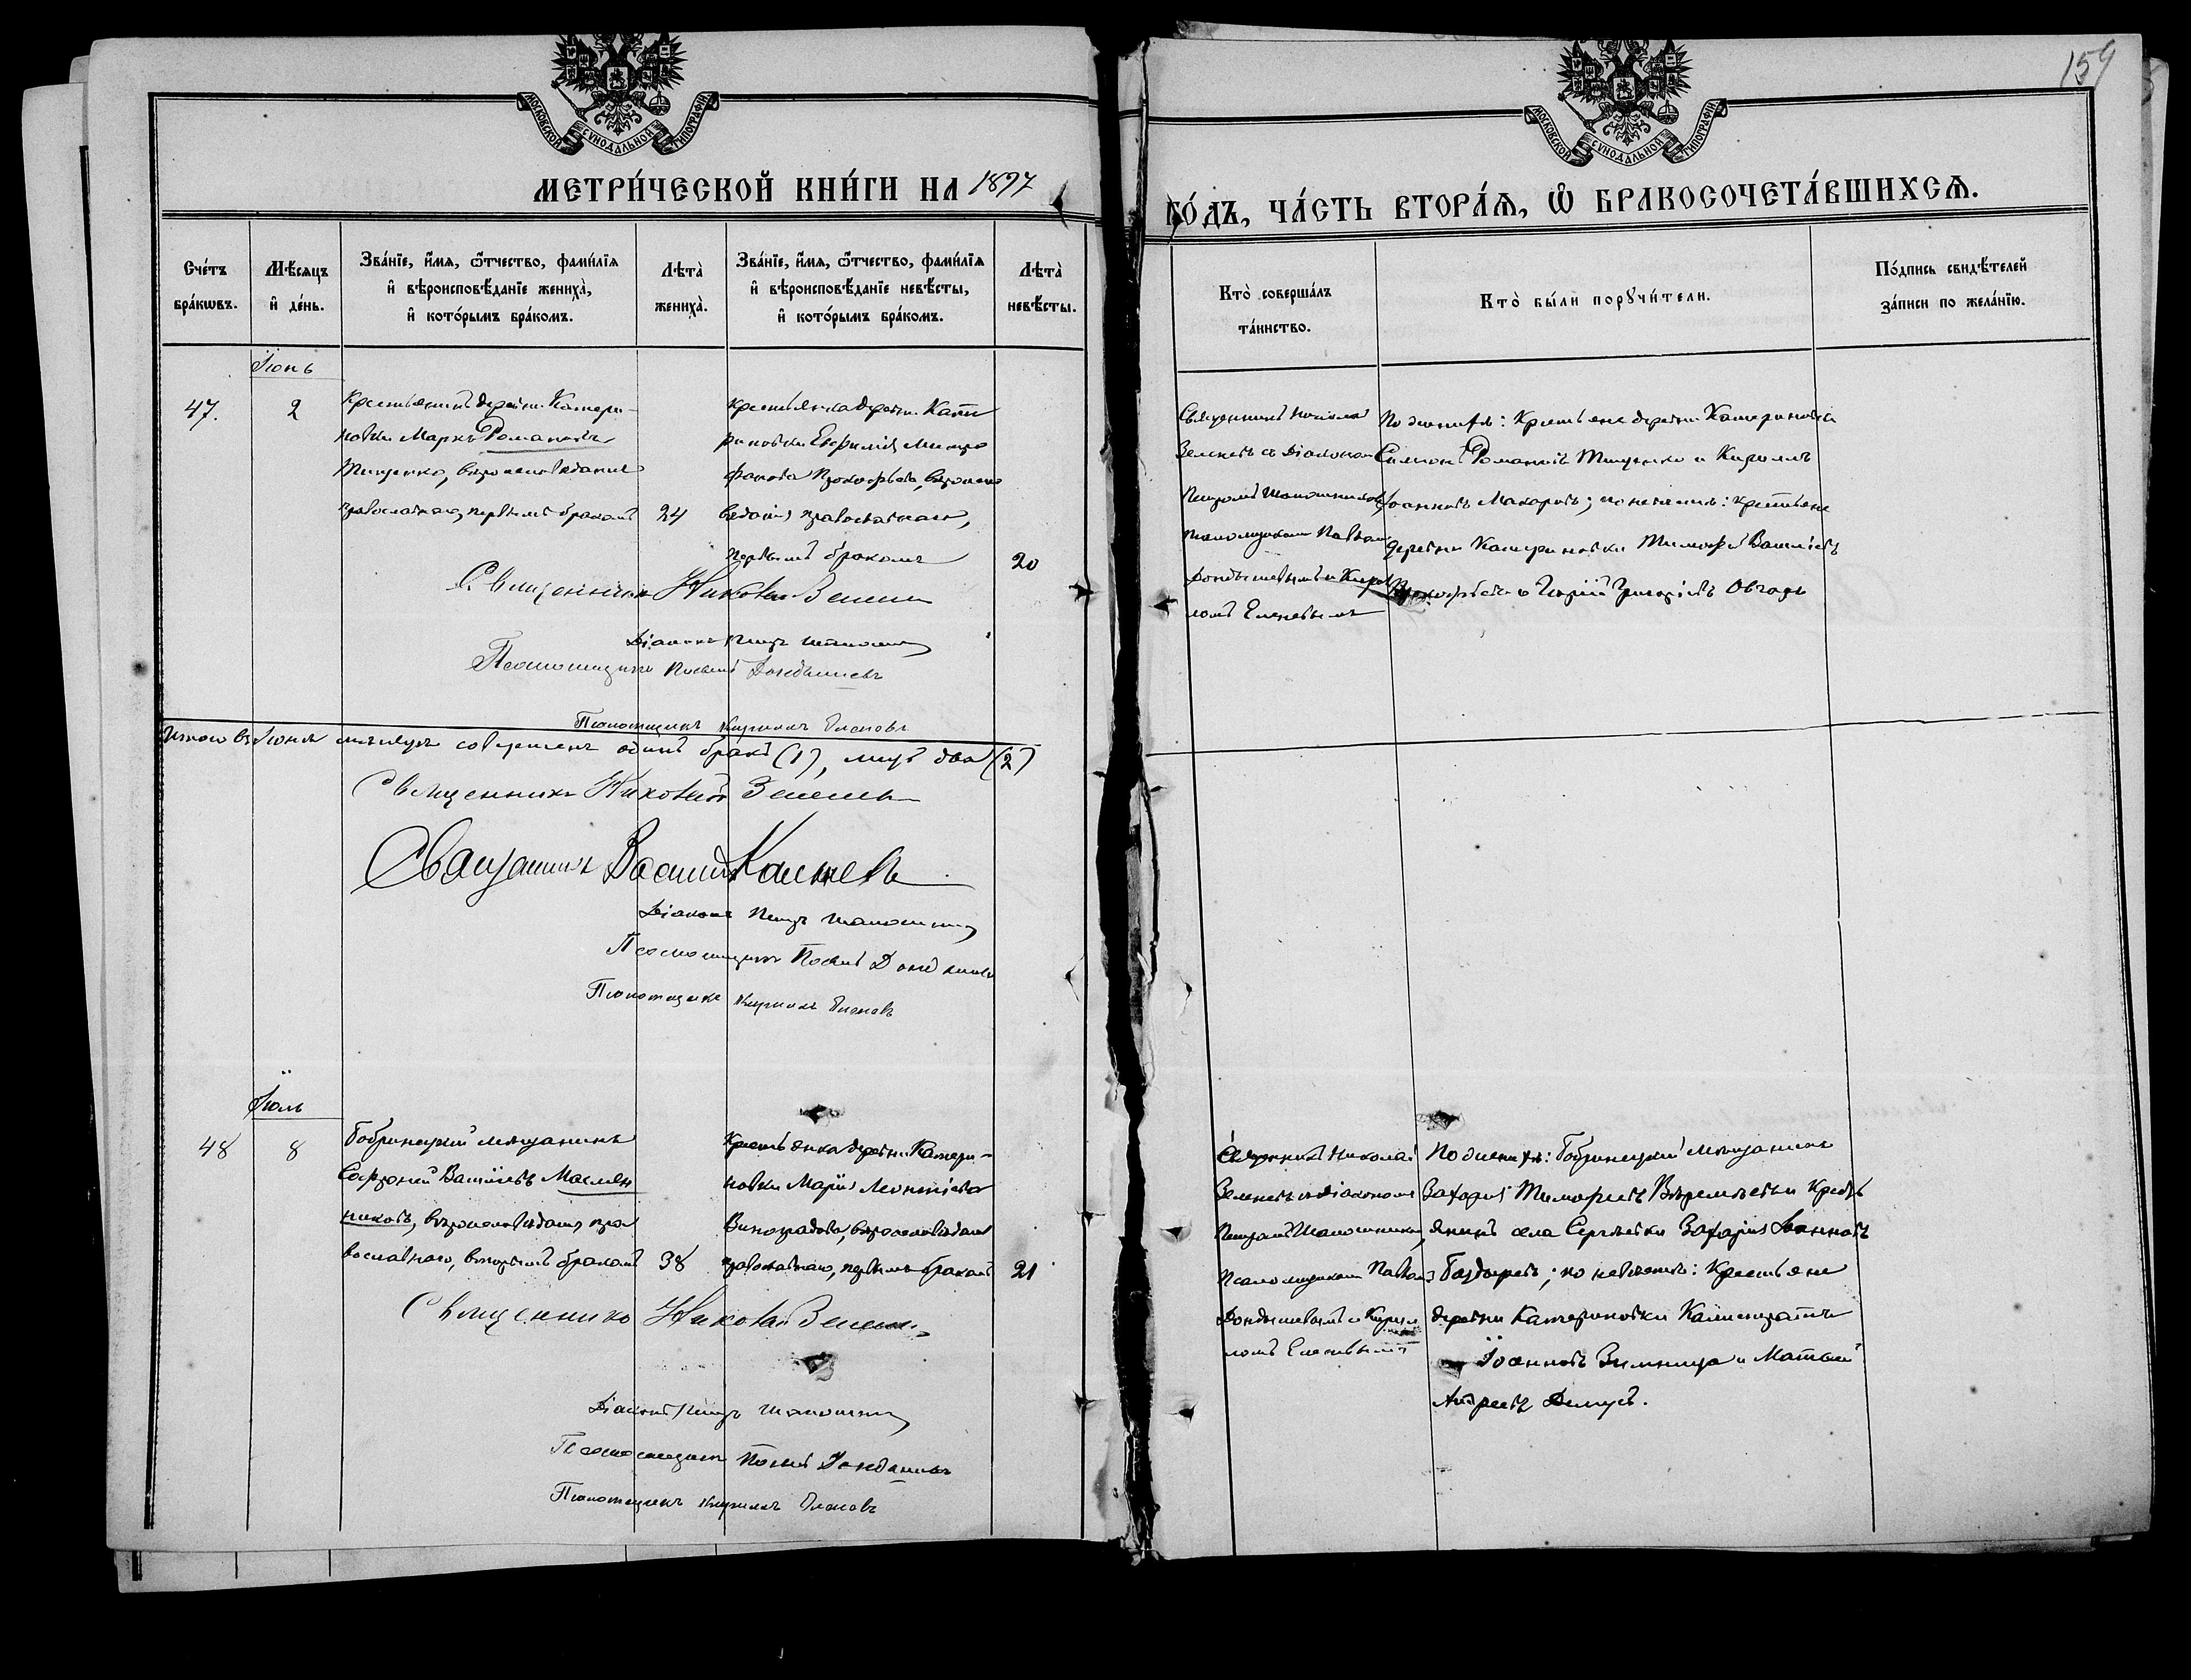 159
МОСКОВСКОЙ СѴНОДАЛЬНОЙ ТИПОГРАФІИ
МОСКОВСКОЙ СѴНОДАЛЬНОЙ ТИПОГРАФІИ
МЕТРИ́ЧЕСКОЙ КНИ́ГИ НА 1897
ГО́ДЪ, ЧА́СТЬ ВТОРА́Ѧ, Ѽ БРАКОСОЧЕТА́ВШИХСѦ.
Сче́тъ бра́кѡвъ.
Мѣ́сяцъ и҆ де́нь.
Зва́нїе, и҆́мѧ, ѻ҆́тчество, фами́лїѧ и҆ вѣроисповѣ́данїе жениха̀, и҆ кото́рымъ бра́комъ.
Лѣта̀ жениха̀.
Зва́нїе, и҆́мѧ, ѻ҆́тчество, фами́лїѧ и҆ вѣроисповѣ́данїе невѣ́сты, и҆ кото́рымъ бра́комъ.
Лѣта̀ невѣ́сты.
Кто̀ соверша́лъ та́инство.
Кто̀ бы́ли порꙋчи́тели.
По́дпись свидѣ́телей за́писи по жела́нїю.
Іюнь
47.
2
Крестьянинъ деревни Катери-
новки Маркъ Романовъ
Тищенко, вѣроисповѣданія
православнаго, первымъ бракомъ
24
крестьянка деревни Кате
риновки Евфимія Митро
фанова Прокофьева, вѣроиспо
вѣданія православнаго,
первымъ бракомъ
20
Священникъ Николай
Зеленевъ съ діакономъ
Петромъ Шапошниковымъ
псаломщиками Павломъ
Дондышевымъ и Кирил
ломъ Еленевымъ
По женихѣ: Крестьяне деревни Катериновки
Симеонъ Романовъ Тищенко и Кириллъ
Іоанновъ Макаровъ; по невѣстѣ: крестьяне
деревни Катериновки Тимофей Васильевъ
Прокофьевъ и Георгій Григорьевъ Овчарь
Священникъ Николай Зеленев
Діаконъ Петръ Шапошник
Псаломщикъ Павелъ Дондышевъ
Псаломщикъ Кириллъ Еленевъ
Итого въ Іюнѣ мѣсяцѣ совершенъ одинъ бракъ (1), лицъ два (2)
Священникъ Николай Зеленев
Священникъ Василій
Діаконъ Петръ Шапошник
Псаломщикъ Павелъ Дондышевъ
Псаломщикъ Кириллъ Еленевъ
Іюль
48
8
Бобринецкій мѣщанинъ
Софроній Васильевъ Маслен
никовъ, вѣроисповѣданія пра
вославнаго, вторымъ бракомъ
38
крестьянка деревни Катери-
новки Марія Леонтіева
Виноградова, вѣроисповѣданія
православнаго, первымъ бракомъ
21
Священникъ Николай
Зеленевъ съ діакономъ
Петромъ Шапошниковымъ,
Псаломщиками Павломъ
Дондышевымъ и Кирил
ломъ Еленевымъ
По женихѣ: Бобринецкій мѣщанинъ
Захарій Тимофеевъ Веремьевъ и Кресть
янинъ села Сергѣевки Захарій Іоанновъ
Боздыревъ; по невѣстѣ: Крестьяне
деревни Катериновки Каллистратъ
Іоанновъ Зимница и Матвей
Андреевъ Демусъ.
Священникъ Николай Зеленев
Діаконъ Петръ Шапошник
Псаломщикъ Павелъ Дондышевъ
Псаломщикъ Кириллъ Еленевъ